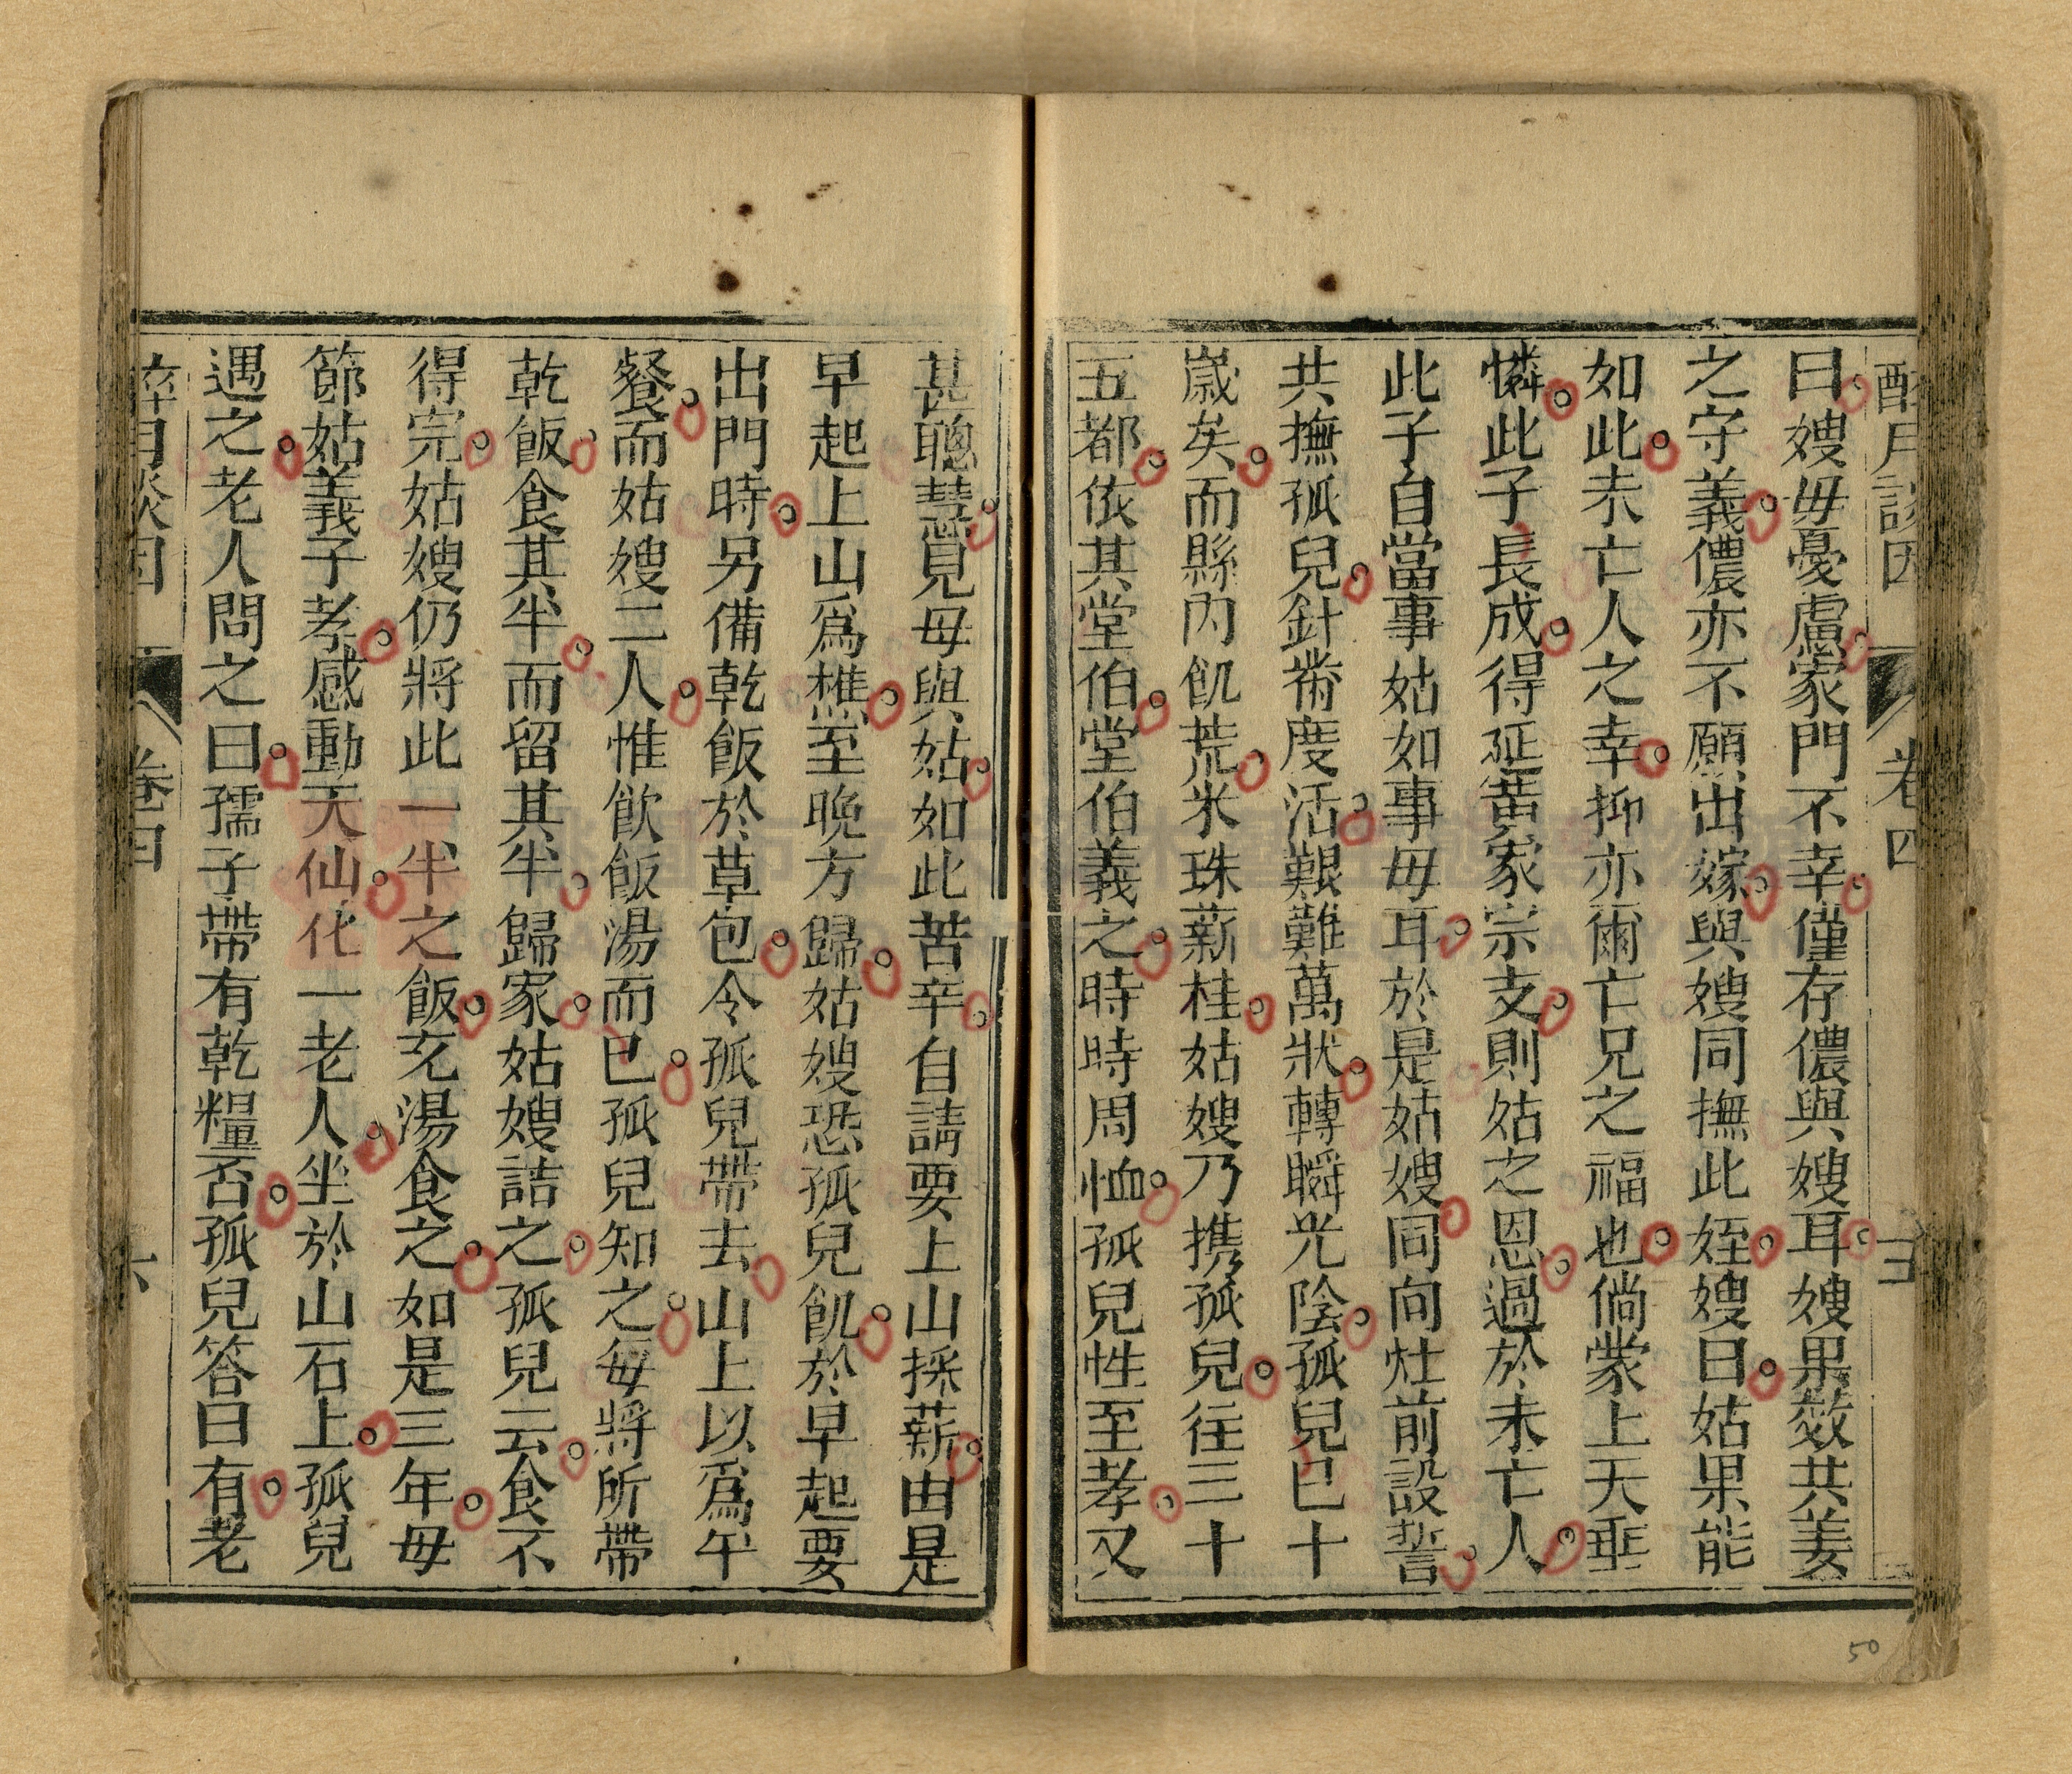 醉月談因 卷四 五
曰嫂毋憂慮家門不幸僅存儂與嫂耳嫂果效共姜
之守義儂亦不願出嫁與嫂同撫此姪嫂曰姑果能
如此未亡人之幸抑亦爾亡兄之福也倘蒙上天垂
憐此子長成得延黃家宗支則姑之恩過於未亡人
此子自當事姑如事母耳於是姑嫂同向灶前設誓
共撫孤兒針黹度活艱難萬狀轉瞬光陰孤兒已十
歲矣而縣內飢荒米珠薪桂姑嫂乃携孤兒往三十
五都依其堂伯堂伯義之時時周恤孤兒性至孝又
甚聰慧見母與姑如此苦辛自請要上山採薪由是
早起上山爲樵至晚方歸姑嫂恐孤兒飢於早起要
出門時另備乾飯於草包令孤兒帶去山上以爲午
餐而姑嫂二人惟飲飯湯而已孤兒知之每將所帶
乾飯食其半而留其半歸家姑嫂詰之孤兒云食不
得完姑嫂仍將此一半之飯充湯食之如是三年母
節姑義子孝感動天仙化一老人坐於山石上孤兒
遇之老人問之曰孺子帶有乾糧否孤兒答曰有老
醉月談因 卷四 六
50